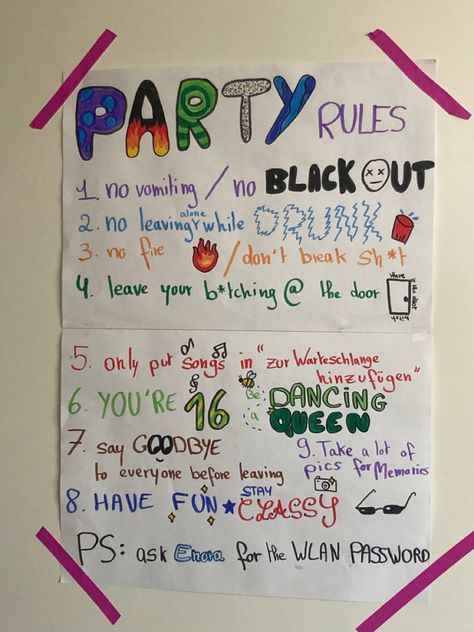 PARTY RULES
1. no vomiting / no BLACK OUT
2. no leaving alone while DRUNK
3. no fire / don't break sh*t
4. leave your b*tching @ the door
Here is the door bitch
5. only put songs in "zur Warteschlange
hinzufügen"
6. YOU'RE 16 Be a DANCING QUEEN
7. say GOODBYE
to everyone before leaving
9. Take a lot of
pics for Memories
8. HAVE FUN STAY CLASSY
PS: ask Enora for the WLAN PASSWORD